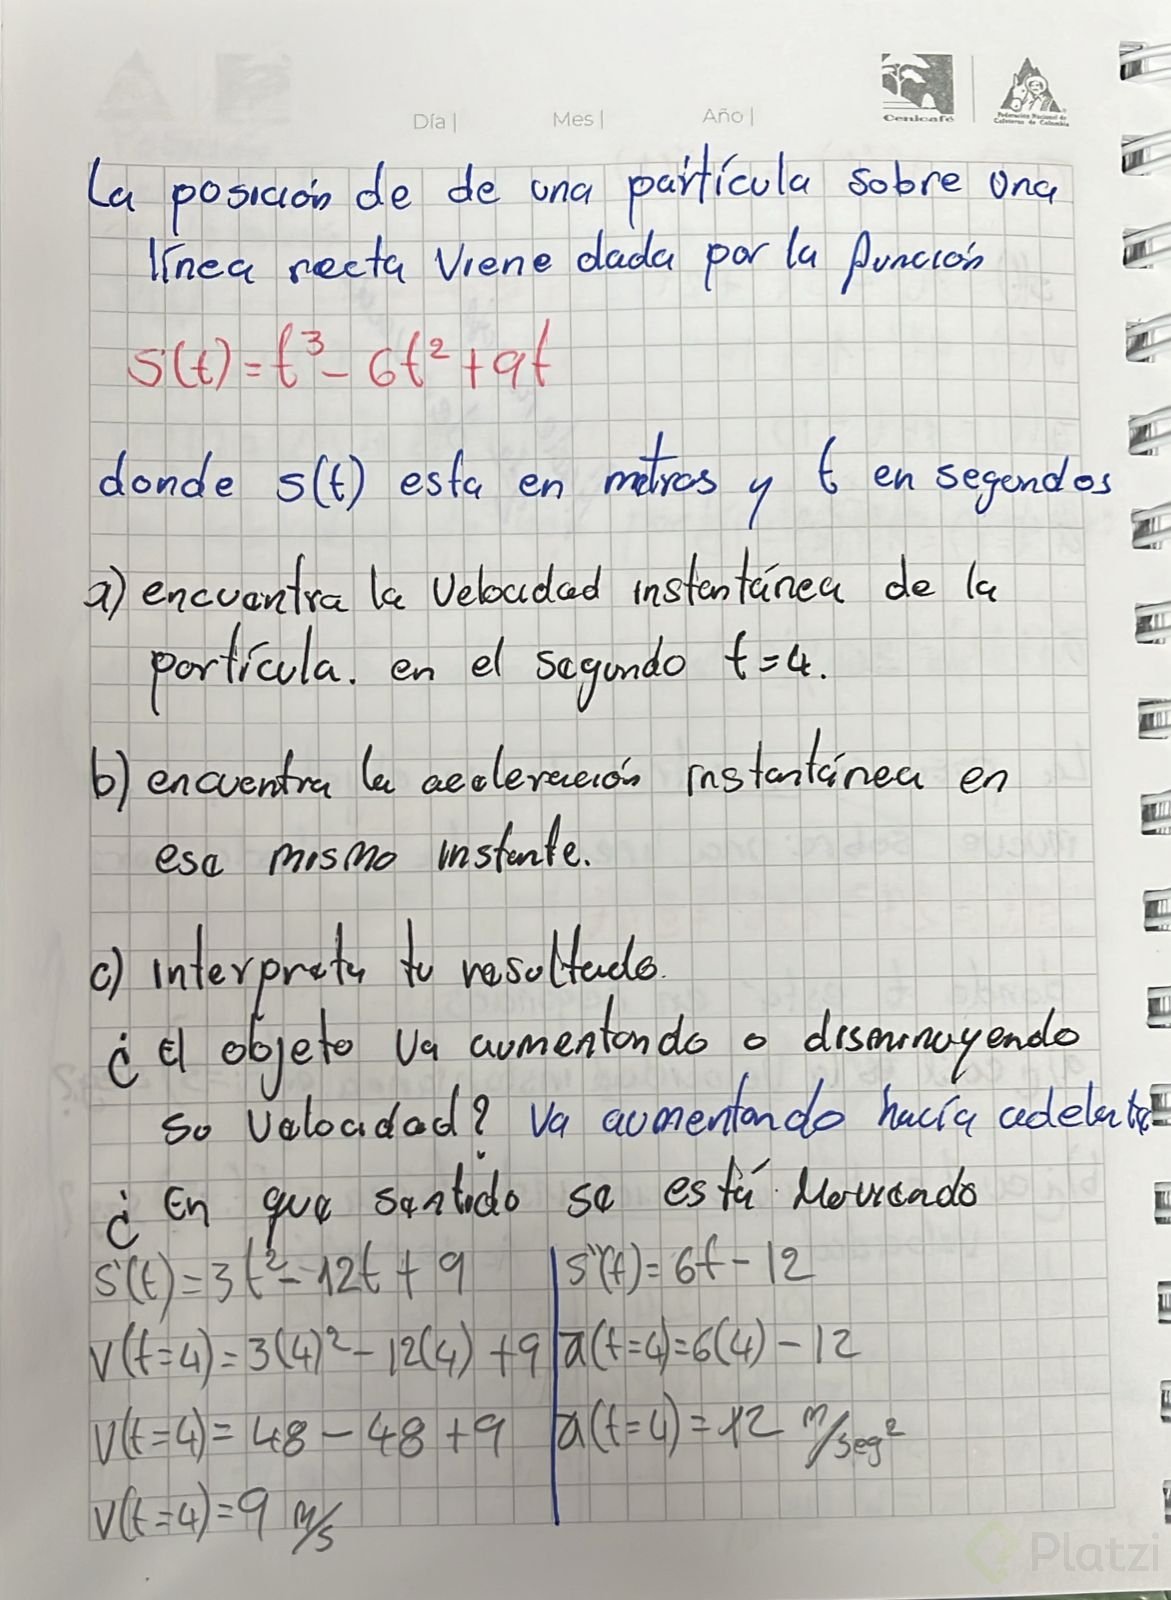 Día |
Mes |
Año |
Cenicafé
Federación Nacional de
Cafeteros de Colombia
La posición de de una partícula sobre una
línea recta viene dada por la función
s(t) = t³ - 6t² + 9t
donde s(t) esta en metros y t en segundos
a) encuentra la velocidad instantánea de la
partícula. en el segundo t=4.
b) encuentra la aceleración instantánea en
ese mismo instante.
c) interpreta tu resultado.
¿ El objeto va aumentando o disminuyendo
su velocidad? Va aumentando hacía adelante
¿ En que sentido se está Moviendo
s'(t) = 3t² - 12t + 9
v(t=4) = 3(4)² - 12(4) + 9
v(t=4) = 48 - 48 + 9
v(t=4) = 9 m/s
s''(t) = 6t - 12
a(t=4) = 6(4) - 12
a(t=4) = 12 m/seg²
Platzi